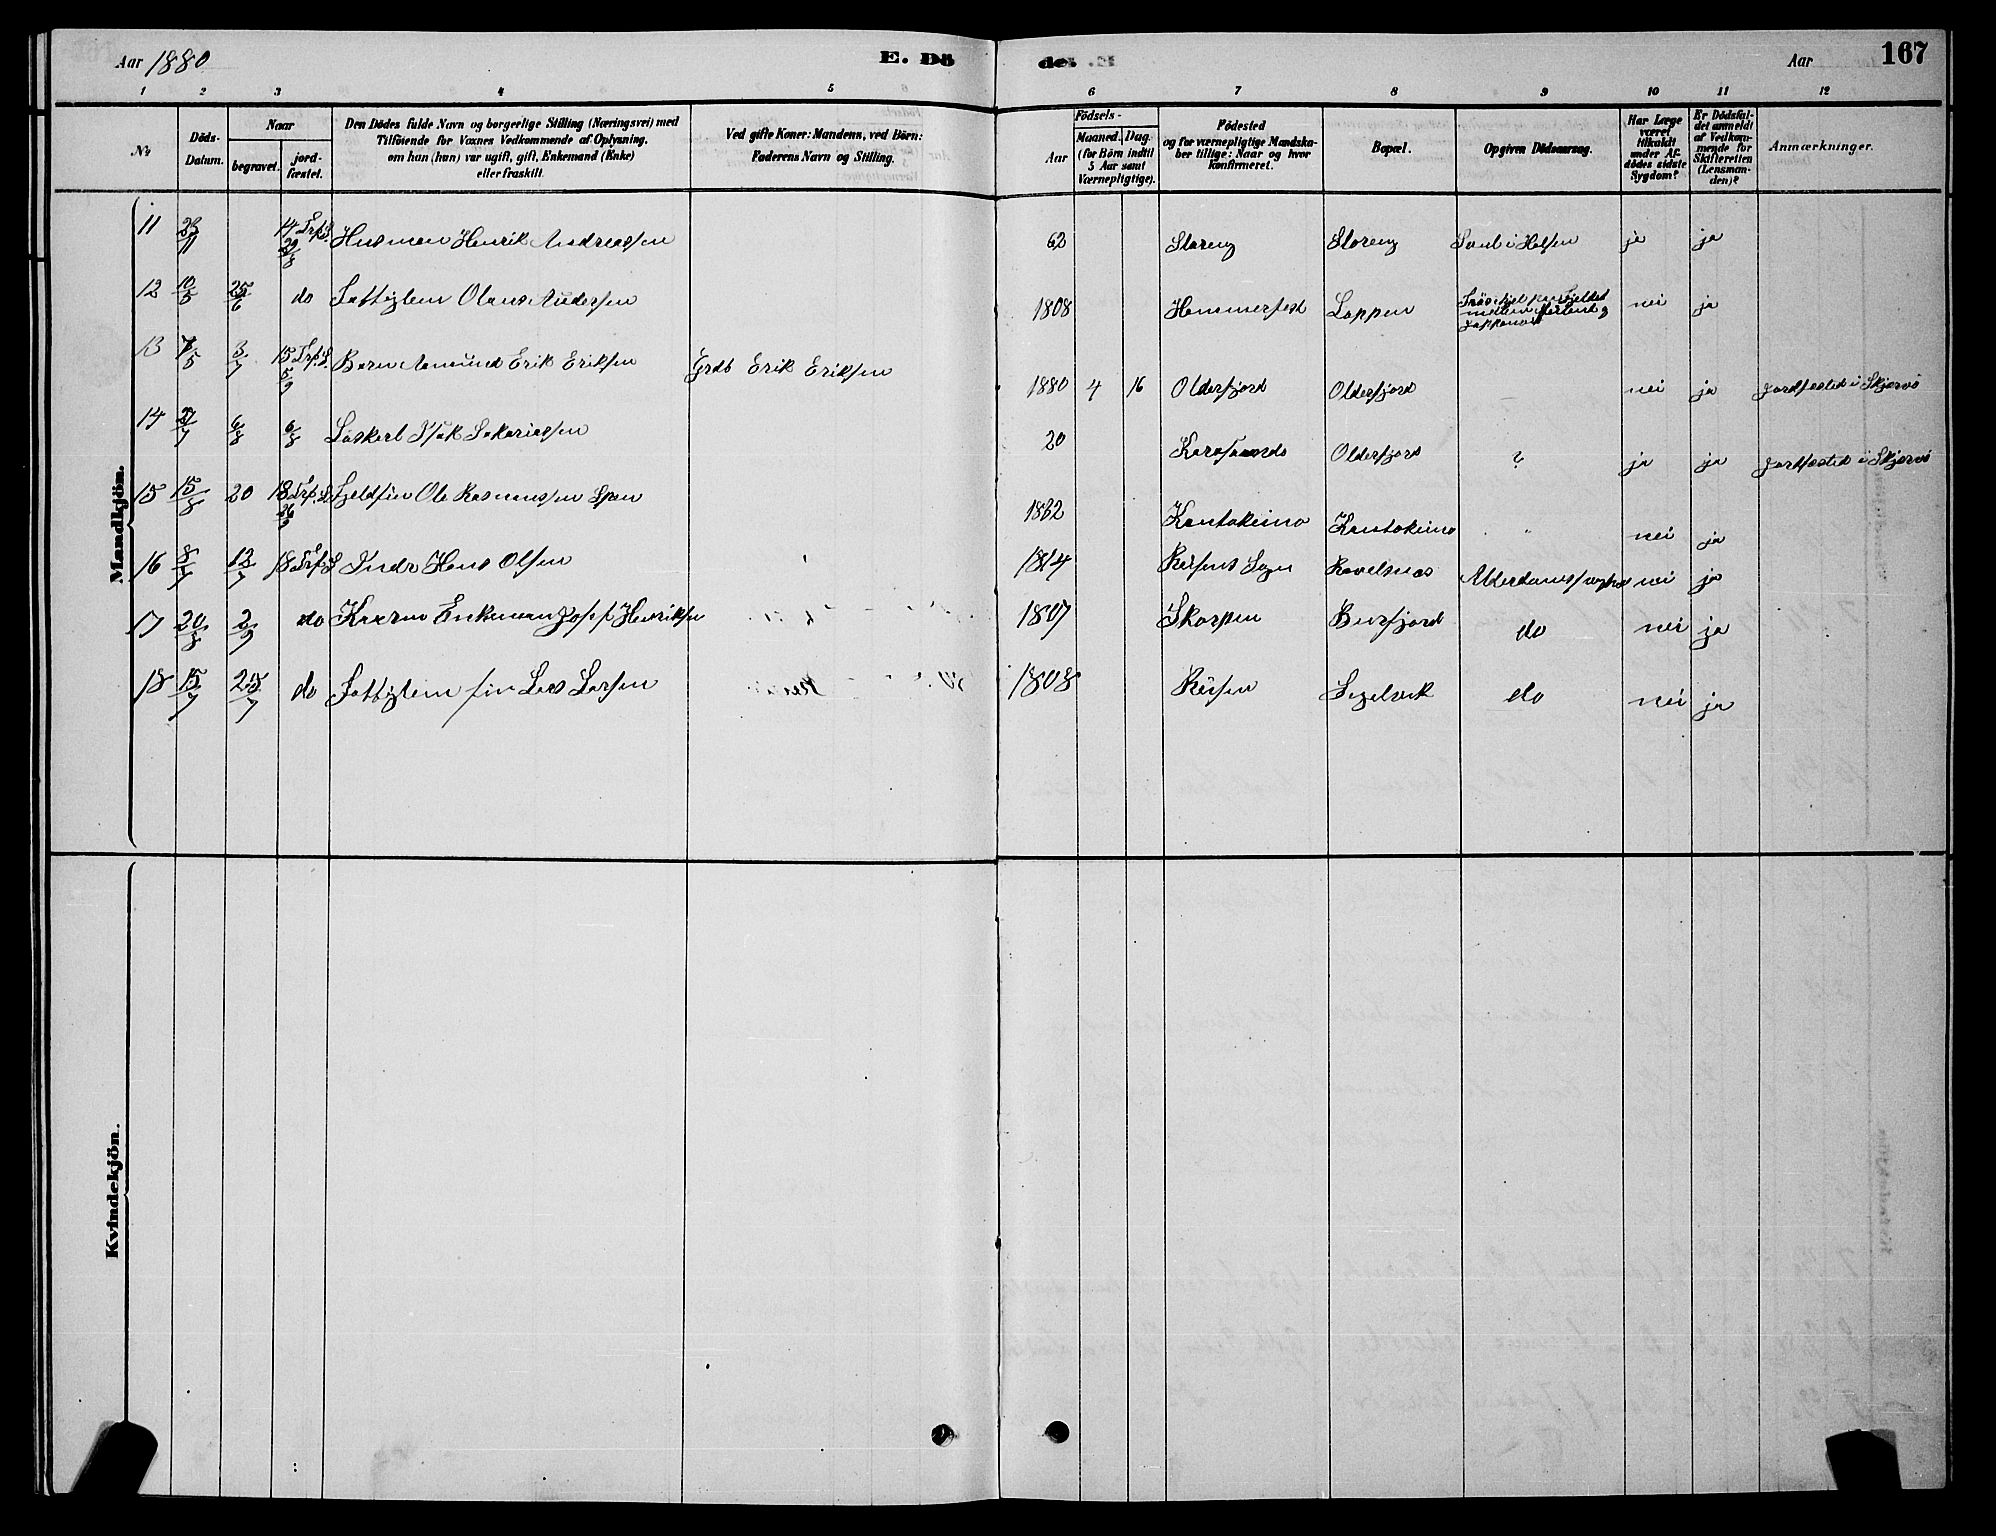 Aar 1880 E. Dö de. Aar 167
1 2 3 4 5 6 7 8 9 10 11 12
Nr. Döds-Datum. Naar begravet. jordfæstet. Den Dödes fulde Navn og borgerlige Stilling (Næringsvei) med Tilföiende for Voxnes Vedkommende af Oplysning, om han (hun) var ugift, gift, Enkemand (Enke) eller fraskilt. Ved gifte Koner: Mandens, ved Börn: Faderens Navn og Stilling. Födsels- Aar Maaned. Dag. (for Börn indtil 5 Aar samt Værnepligtige). Födested og for værnepligtige Mandskaber tillige: Naar og hvor konfirmeret. Bopæl. Opgiven Dödsaarsag. Har Læge været tilkaldt under Afdödes sidste Sygdom? Er Dödsfaldet anmeldt af Vedkommende for Skifteretten (Lensmanden)? Anmærkninger.
Mandkjön.
11 14 Trf. S. Husman Henrik Andreassen 62 Storeng Storeng i Halsen ja ja
12 10/5 25/6 do Olaus Andersen 1808 Hammerfest Loppen nei ja
13 7/5 3/7 15 Trf. S. 5/9 Barn Amund Erik Eriksen Grdb Erik Eriksen 1880 4 16 Olderfjord Olderfjord nei ja Jordfæstet i Skjervö
14 27/7 6/8 6/8 Isak Sakariassen 20 Olderfjord ? ja ja Jordfæstet i Skjervö
15 15/8 20 18 Trf. S. Fjeldfin Ole Rasmussen Spen Kautokeino Kautokeino nei ja
16 8/7 12/7 18 Trf. S Indr Hans Olsen 1814 Reisens Sogn Ravelsnæs nei ja
17 20/8 2/9 do Enkeman Josef Henriksen 1807 Skorpen Burfjord do nei ja
18 15/7 25/7 do fin Lars Larsen 1808 Reisen Segelvik do nei ja
Kvindekjön.